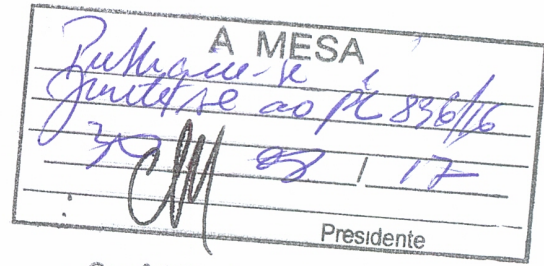 A MESA
Publique-se
Junte-se ao PL 836/16
30 / 08 / 17
Presidente